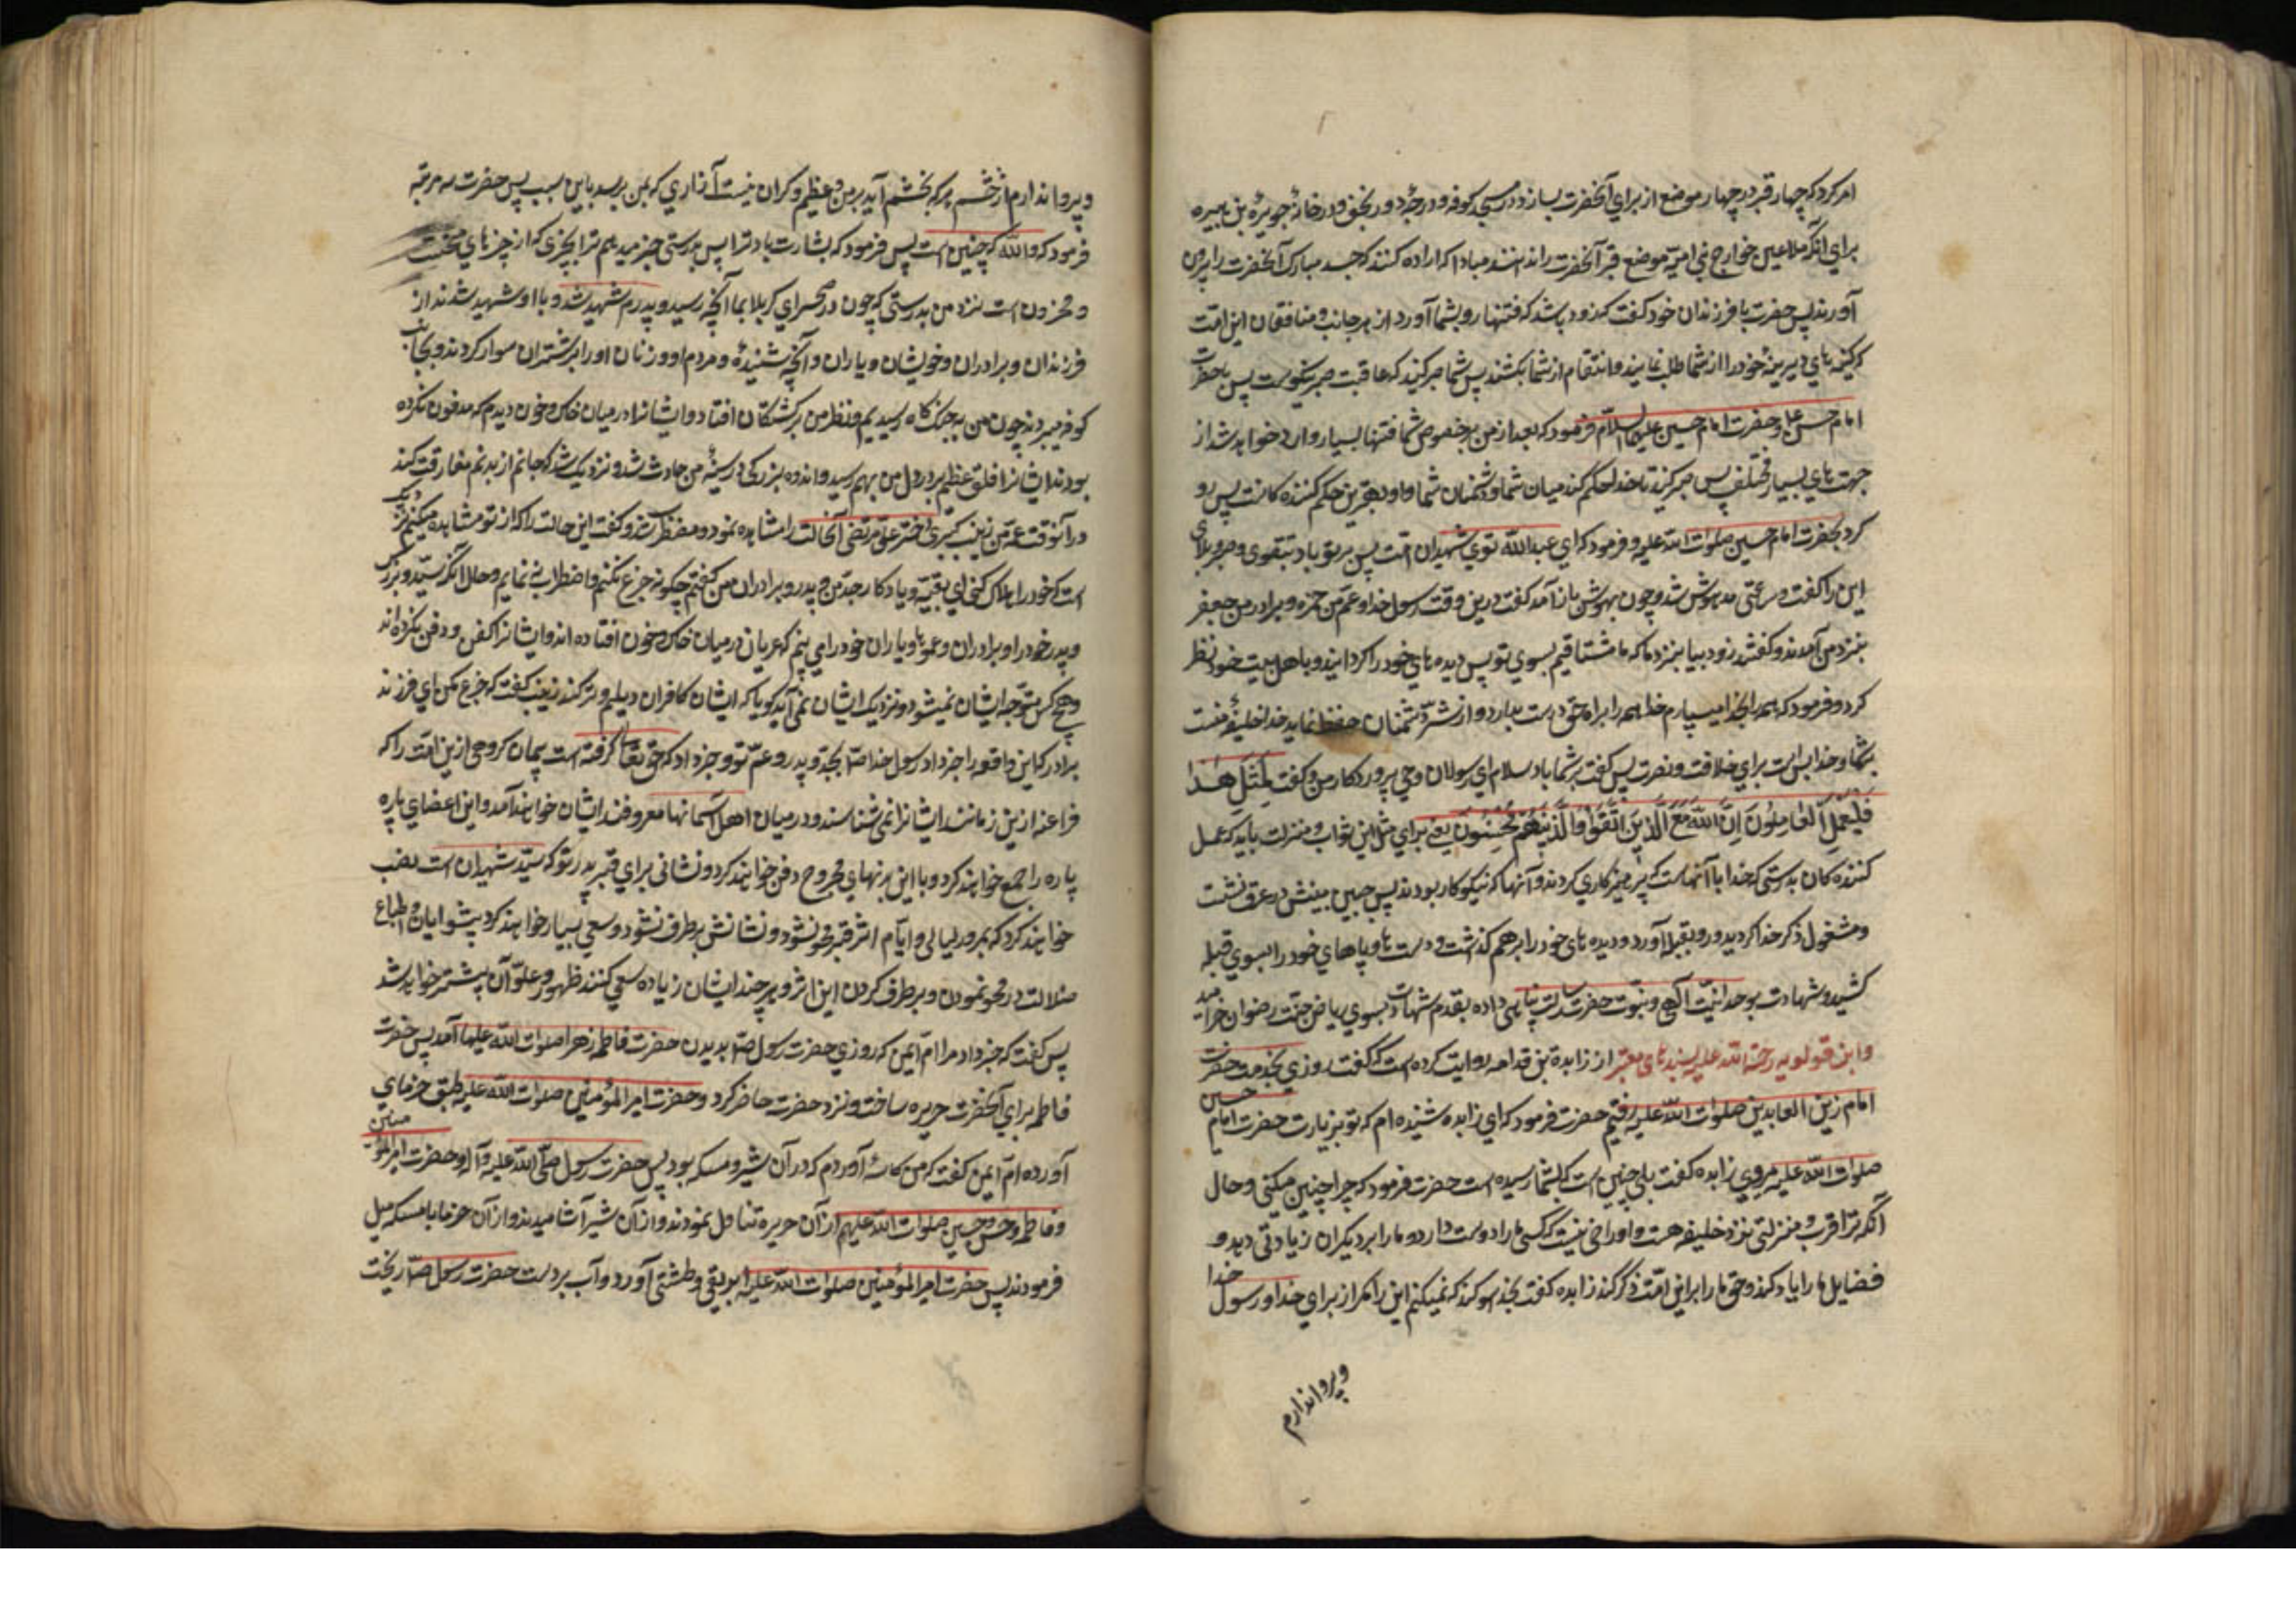 امر کرد که چهار قبر در چهار موضع از برای آنحضرت بسازند در مسجد کوفه و در رحبه و در نجف و در خانهٔ جویرهٔ بن هبیره
برای آنکه ملاعین خوارج بنی امیّه موضع قبر آنحضرت را ندانند مبادا که اراده کنند که جسد مبارک آنحضرت را بیرون
آورند پس حضرت با فرزندان خود گفت که زود باشد که فتنها رو بشما آورد از هر جانب و منافقان این امّت
که کینه های دیرینهٔ خود را از شما طلب نمایند و انتقام از شما بکشند پس شما صبر کنید که عاقبت صبر نیکوست پس با حضرت
امام حسن و با حضرت امام حسین علیهما السلام فرمود که بعد از من بخصوص شما فتنها بسیار وارد خواهد شد از
جهت های بسیار مختلف پس صبر کنید تا خدا حکم کند میان شما و دشمنان شما و او بهترین حکم کننده کانست پس رو
کرد بحضرت امام حسین صلوات الله علیه و فرمود که ای عبدالله توی شهیدان امّت پس بر تو باد بتقوی و صبر بر بلای
این را گفت و ساعتی مدهوش شد و چون بهوش باز آمد گفت درین وقت رسول خدا و عمّ من حمزه و برادر من جعفر
بنزد من آمدند و گفتند زود بیا بنزد ما که ما مشتاقیم بسوی تو پس دیده های خود را گردانید و باهل بیت خود نظر
کرد و فرمود که همه را بخدا میسپارم خدا همه را براه حق درست بدارد و از شرّ دشمنان حفظ نماید خدا خلیفهٔ منست
بشما و خدا بس است برای خلافت و نصرت پس گفت بر شما باد سلام ای رسولان وحی پروردکار من و گفت لِمِثلِ هٰذا
فَلیَعمَلِ العامِلُونَ اِنَّ اللهَ مَعَ الَّذینَ اتَّقَوا وَالَّذینَ هُم مُحسِنُونَ یعنی برای مثل این ثواب و منزلت باید که عمل
کننده کان بدرستی که خدا با آنهاست که پرهیزکاری کردند و آنها که نیکوکار بودند پس جبین مبینش در عرق نشست
و مشغول ذکر خدا کردید و رو بقبله آورد و دیده های خود را بر هم گذاشت و دست ها و پاهای خود را بسوی قبله
کشید و شهادت بوحدانیّت الهی و بنبوّت حضرت رسالت پناهی داده بقدم شهادت بسوی ریاض جنّت رضوان خرامید
و ابن قولویه رحمة الله علیه بسند های معتبر از زایدة بن قدامه روایت کرده است که گفت روزی بخدمت حضرت
امام زین العابدین صلوات الله علیه رفتم حضرت فرمود که ای زایده شنیده ام که تو بزیارت حضرت امام حسین
صلوات الله علیه میروی زایده گفت بلی چنین است که بشما رسیده است حضرت فرمود که چرا چنین میکنی و حال
آنکه ترا قرب و منزلتی نزد خلیفه هست و او راضی نیست که کسی ما را دوست دارد و ما را بر دیگران زیادتی دهد و
فضایل ما را یاد کند و حق ما را بر این امّت ذکر کند زایده گفت بخدا سوگند که نمیکنم این را مگر از برای خدا و رسول خدا
و پروا ندارم
و پروا ندارم از خشم هر که بخشم آید بر من و عظیم و کران نیست آزاری که بمن برسد باین سبب پس حضرت سه مرتبه
فرمود که والله که چنین است پس فرمود که بشارت باد ترا پس بدرستی خبر میدهم ترا بچیزی که از چیزهای
و مخزون است نزد من بدرستی که چون در صحرای کربلا بما آنچه رسید و پدرم شهید شد و با او شهید شدند از
فرزندان و برادران و خویشان و یاران و آنچه شنیدهٔ و مردم او و زنان او را بر شتران سوار کردند و بجانب
کوفه میبردند چون من به جنک کاه رسیدیم و نظر من بر کشتگان افتاد و ایشانرا در میان خاک و خون دیدم که مدفون نکرده
بودند ایشانرا قلق عظیم بر دل من بهم رسید و اندوه بزرکی در سینهٔ من حادث شد و نزدیک شد که جانم از بدنم مفارقت کند
در آنوقت عمّهٔ من زینب کبری دختر علی مرتضی آنحالت را مشاهده نمود و مضطرب شد و گفت این حالت را که از تو مشاهده میکنم نزدیک
است که خود را هلاک کنی ای بقیّه و یادکار جدّ من و پدر و برادران من گفتم چکونه جزع نکنم و اضطراب نه نمایم و حال آنکه سیّد و بزرک
و پدر خود را و برادران و عموها و یاران خود را می بینم که عریان در میان خاک و خون افتاده اند و ایشانرا کفن و دفن نکرده اند
و هیچ کس متوجّه ایشان نمیشود و نزدیک ایشان نمی آید گویا که ایشان کافران دیلم و ترکند زینب گفت که جزع مکن ای فرزند
برادر که این واقعه را خبر داد رسول خدا ص بجدّ و پدر و عمّ تو و خبر داد که حق تعالی گرفته است پیمان گروهی ازین امّت را که
فراعنه ازین زمانند ایشانرا نمی شناسند و در میان اهل آسمانها معروفند ایشان خواهند آمد و این اعضای پاره
پاره را جمع خواهند کرد و با این بدنهای مجروح دفن خواهند کرد و نشانی برای قبر پدر تو که سیّد شهیدان است نصب
خواهند کرد که بمرور لیالی و ایّام اثر قبر محو نشود و نشانش بر طرف نشود و سعی بسیار خواهند کرد پیشوایان و اتباع
ضلالت در محو نمودن و بر طرف کردن این اثر و هر چند ایشان زیاده سعی کنند ظهور و علوّ آن بیشتر خواهد شد
پس گفت که خبر داد مرا امّ ایمن که روزی حضرت رسول ص بدیدن حضرت فاطمه زهرا صلوات الله علیها آمد پس حضرت
فاطمه برای آنحضرت حریره ساخت و نزد حضرت حاضر کرد و حضرت امیر المؤمنین صلوات الله علیه طبق خرمای
آورده امّ ایمن گفت که من کاسهٔ آوردم که در آن شیر و مسکه بود پس حضرت رسول صلّی الله علیه و آله و حضرت امیر المؤمنین
و فاطمه و حسن و حسین صلوات الله علیهم از آن حریره تناول نمودند و از آن شیر آشامیدند و از آن خرما با مسکه میل
فرمودند پس حضرت امیر المؤمنین صلوات الله علیه ابریقی و طشتی آورد و آب بر دست حضرت رسول ص ریخت